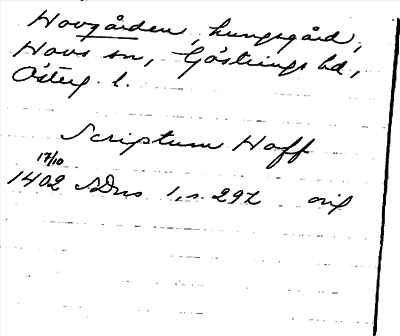 Hovgården, kungsgård,
Hovs sn, Göstrings hd,
Österg. l.
Scriptum Hoff
17/10
1402 SDns 1, s. 292 orig